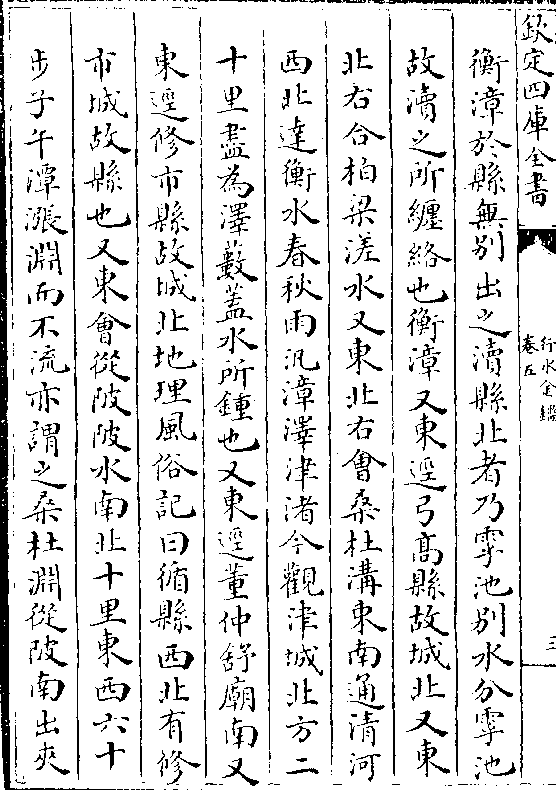 欽定四庫全書
行水金鑑
卷五
三
衡漳於縣無別出之瀆縣北者乃雩池別水分雩池
故瀆之所纏絡也衡漳又東逕弓髙縣故城北又東
北右合柏梁溠水又東北右會桑杜溝東南通清河
西北達衡水春秋雨汎漳澤津渚今觀津城北方二
十里盡為澤藪蓋水所鍾也又東逕董仲舒廟南又
東逕修市縣故城北地理風俗記曰循縣西北有修
市城故縣也又東會從陂陂水南北十里東西六十
步子午潭漲淵而不流亦謂之桑杜淵從陂南出夾